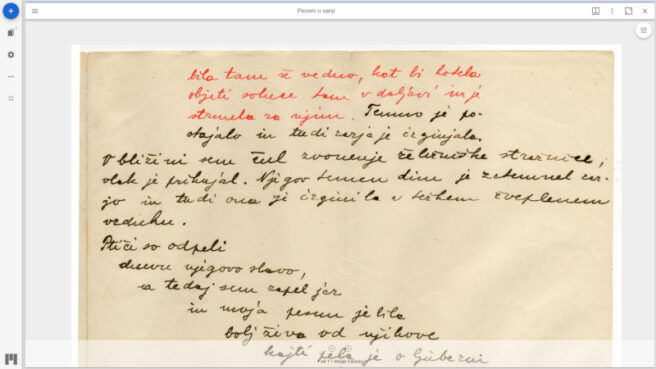 Pesem o sanji
bila tam še vedno, kot bi hotela
objeti solnce tam v daljavi in je
strmela za njim. Temno je po-
stajalo in tudi zarja je izginjala.
V bližini sem čul zvonenje železniške stražnice,
vlak je prihajal. Njegov temen dim je zatemnel zar-
jo in tudi ona je izginila v težkem žveplenem
vzduhu.
Ptiči so odpeli
dnevu njegovo slavo,
a tedaj sem zapel jaz
in moja pesem je bila
bolj živa od njihove
kajti pela je o ljubezni